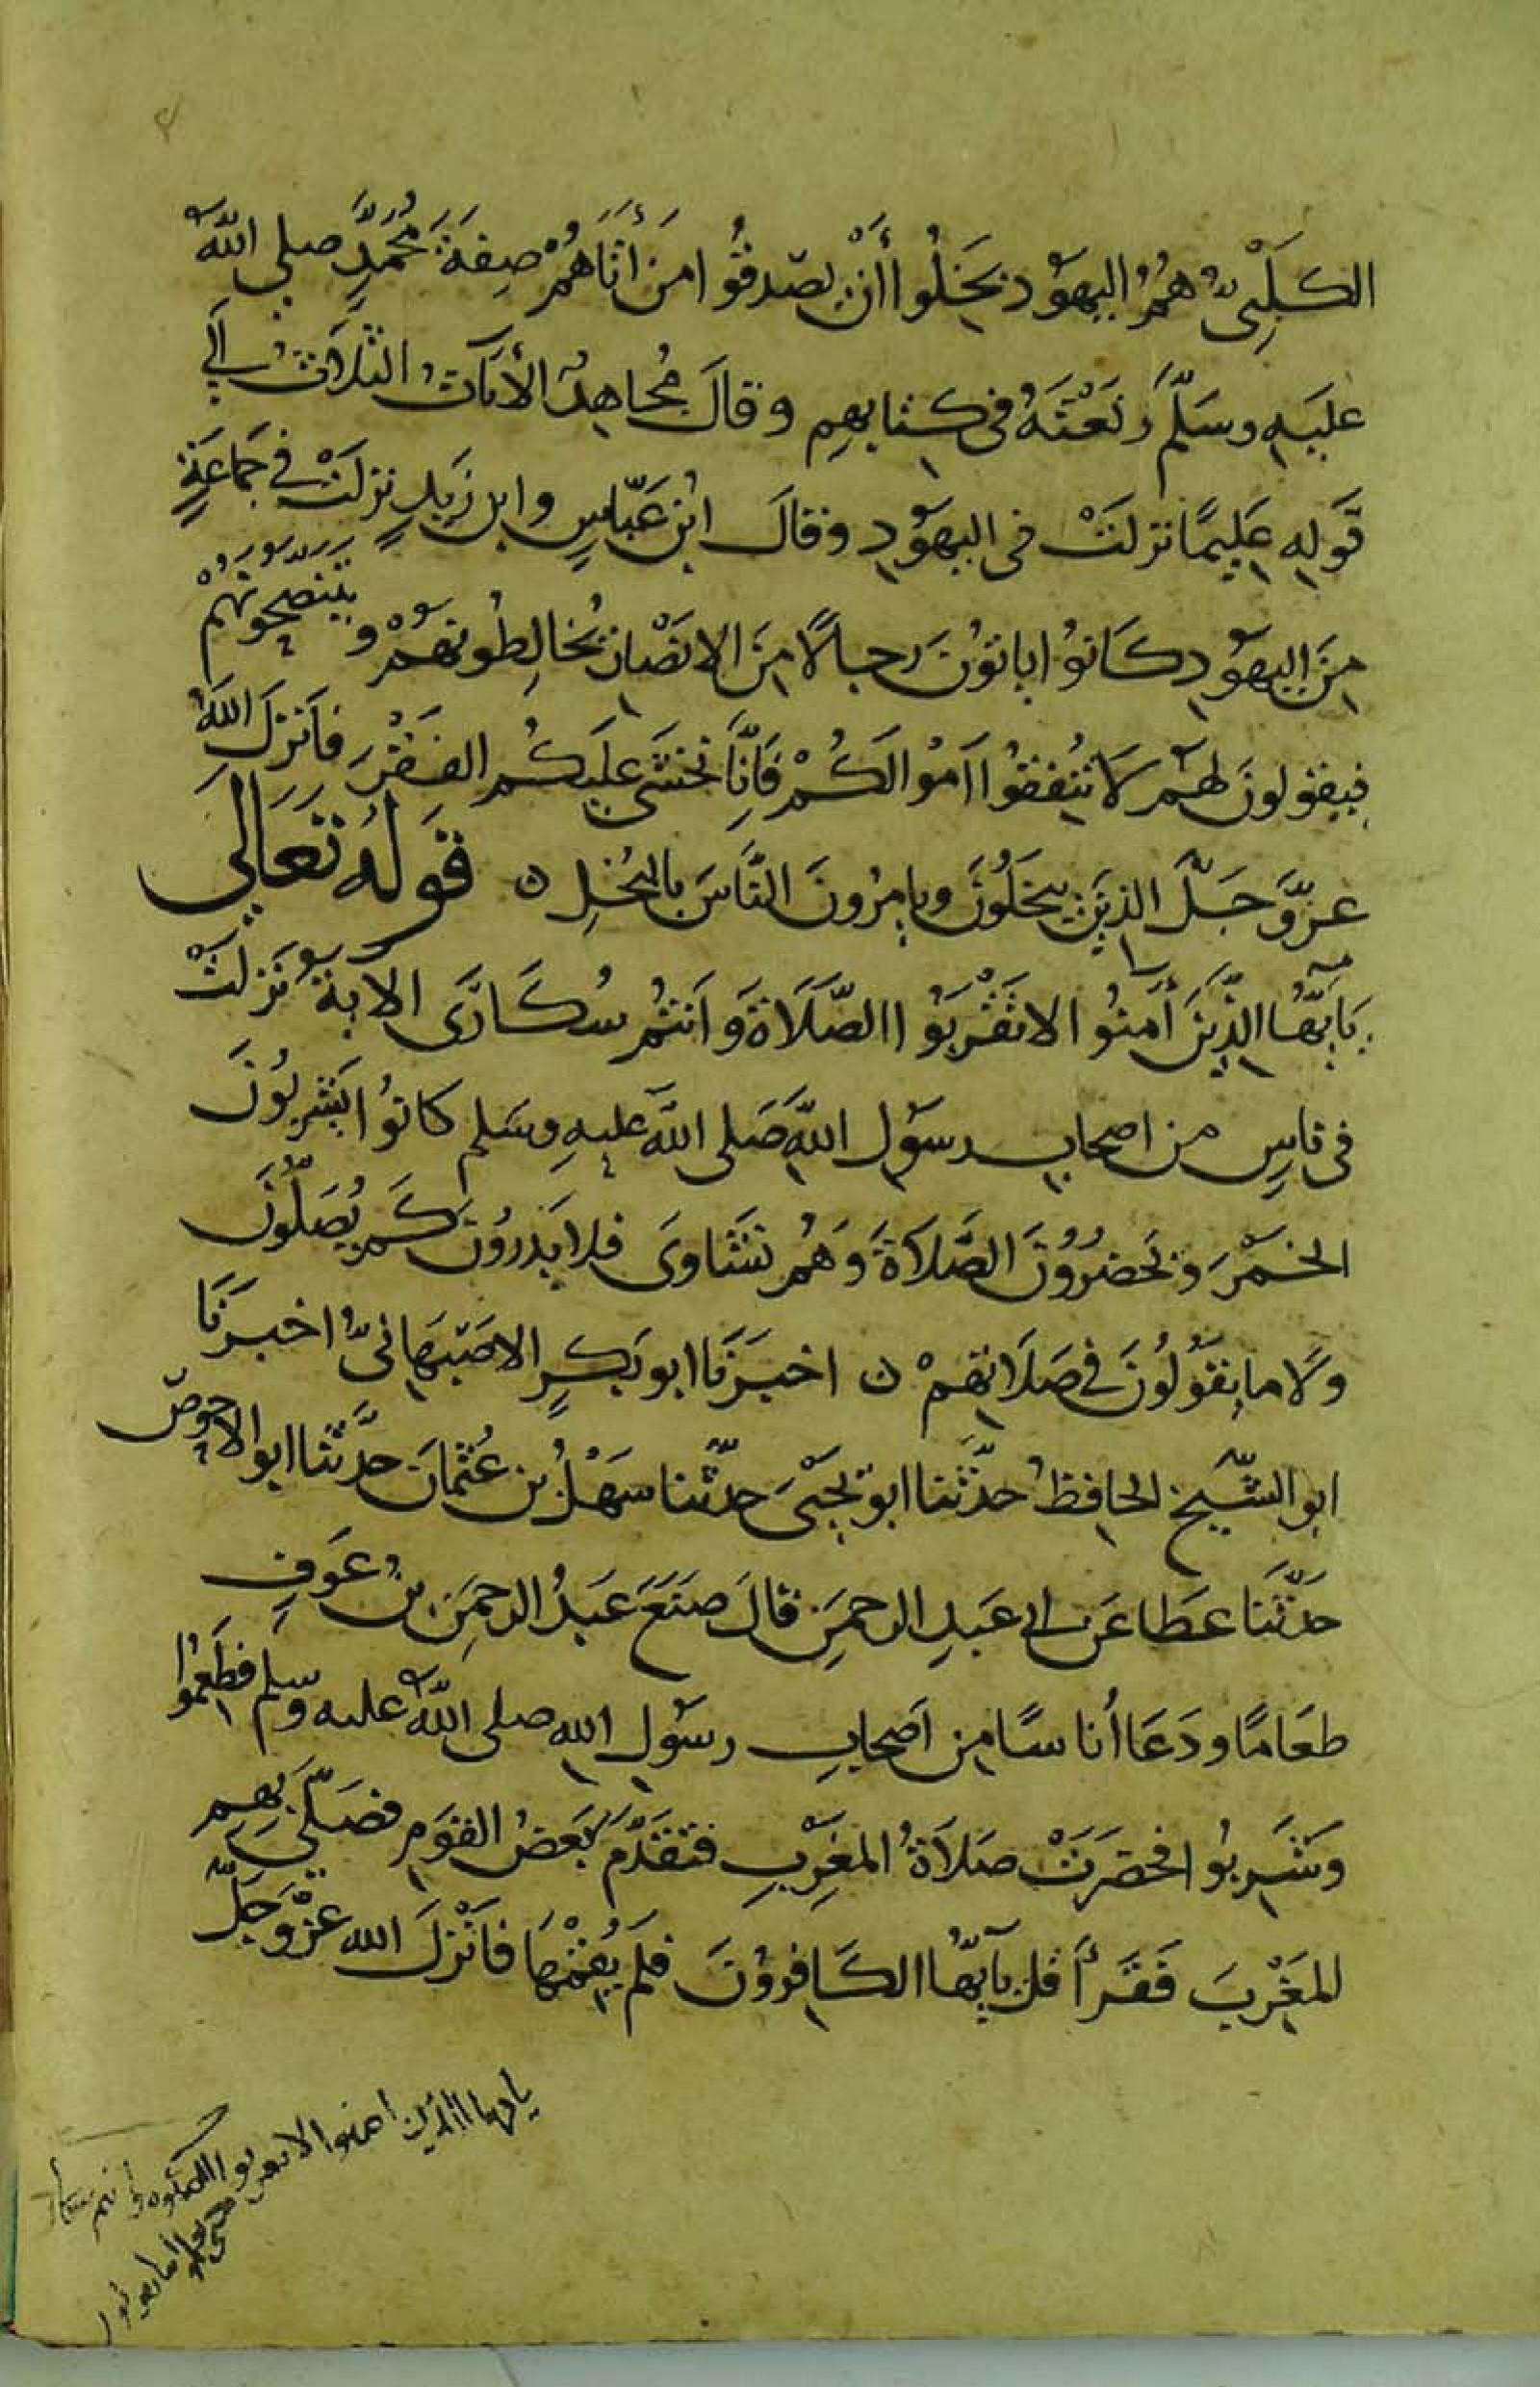 الكَلْبِيُّ هُمُ اليهُود بَخِلُوا أَنْ يصَدقُوا مَن أتَاهُمْ صِفَةَ مُحَمَّدٍ صلى الله
عليهِ وسَلَّمَ وَنَعْتَهُ في كتابِهِم وقالَ مُجاهِدٌ الأيَاتُ الثلاَثُ إلَي
قَولِهِ عَلِيمًا نزلَتْ في اليهُودِ وقالَ ابنُ عَبّاسٍ وابن زَيدٍ نزلَتْ في جَماعَةٍ
مِنَ اليهُودِ كَانوُا ياتوُنَ رجالًا مِنَ الانصَار يُخالِطُونهُمْ وَيَتَنَصَّحُونَهُمْ
فيقولونَ لهُم لَا تُنفِقُوا أَمْوالَكُمْ فَإِنَّا نخشَى عَلَيكُم الفَقْرَ فأنزلَ اللَّهُ
عزَّ وَجَلَّ الذينَ يبخَلُونَ ويامرُونَ النَّاسَ بالبُخلِ ه قولُه تعَالَى
يَاَيُّهَا الذِّينَ أَمنُوا لاتَقْرَبُوا الصَّلَاةَ وَأَنتُم سُكَارَى الاية نَزلَتْ
في ناسٍ من اصحابِ رسوُلِ اللَّهِ صَلى الله عليهِ وسَلم كانوُا يَشربُونَ
الخَمْرَ وَيَحضرُونَ الصَّلاَةَ وَهُم نَشَاوَى فلا يَدرُونَ كَم يُصَلُّونَ
وَلَا ما يقوُلُونَ في صَلَاتِهِمْ ه اخبَرَنَا ابو بَكرٍ الاصَبَهَانيُّ اخبَرَنَا
ابو الشّيخِ الحافظُ حدَّثَنا ابو يَحيَى حدّثَنا سَهْلُ بن عُثمانَ حدَّثنا ابو الاحوص
حدّثَنَا عَطَا عَن ابي عَبدِ الرحمَنِ قالَ صَنَعَ عَبدُ الرحمَنِ بنُ عَوفٍ
طعَامًا ودَعَا أُناسًا مِن اَصحابِ رسوُلِ اللهِ صلى اللَّه عليه وسلم فطَعِمُوا
وَشَرِبُوا فحضَرَتْ صَلاَةُ المغرِبِ فتقَدَّمَ بَعضُ القَومِ فصَلّى بِهِم
المغَرِبَ فَقَرأَ قل يَأيهَا الكَافروُنَ فلَم يُقمْهَا فأنزلَ الله عزّ وجَلّ
يا ايها الذين امنوا لا تقربوا الصلوه وانتم سكار
حتى تعلموا ما تقولون